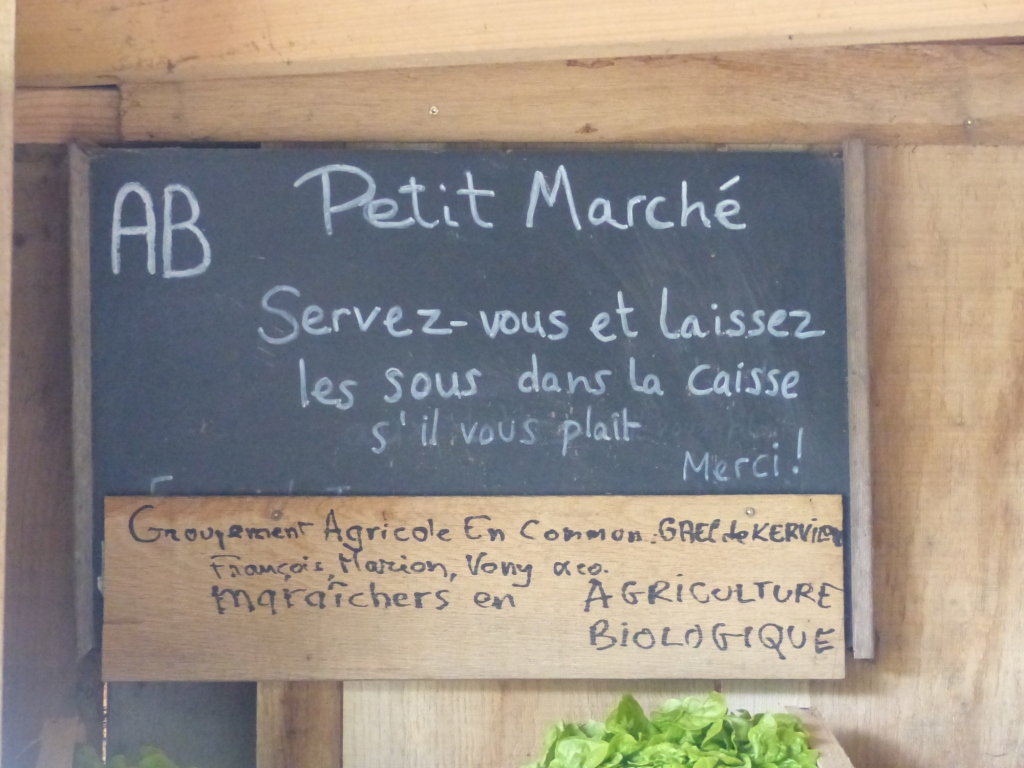 AB
Petit Marché
Servez-vous et laissez
les sous dans la caisse
s'il vous plaît
Merci!
Groupement Agricole En Common. GAEC de
François, Marion, Vony &co.
maraîchers en AGRICULTURE
BIOLOGIQUE